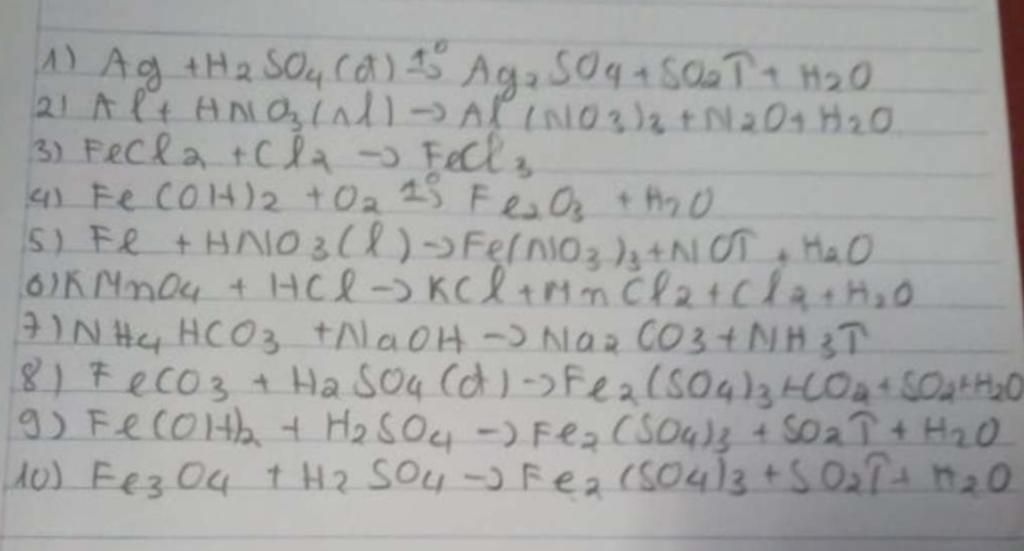 1) Ag + H2SO4(đ) t°→ Ag2SO4 + SO2↑ + H2O
2) Al + HNO3(nl) → Al(NO3)3 + N2O + H2O
3) FeCl2 + Cl2 → FeCl3
4) Fe(OH)2 + O2 t°→ Fe2O3 + H2O
5) Fe + HNO3(l) → Fe(NO3)3 + NO↑ + H2O
6) KMnO4 + HCl → KCl + MnCl2 + Cl2 + H2O
7) NH4HCO3 + NaOH → Na2CO3 + NH3↑
8) FeCO3 + H2SO4(đ) → Fe2(SO4)3 + CO2 + SO2 + H2O
9) Fe(OH)2 + H2SO4 → Fe2(SO4)3 + SO2↑ + H2O
10) Fe3O4 + H2SO4 → Fe2(SO4)3 + SO2↑ + H2O